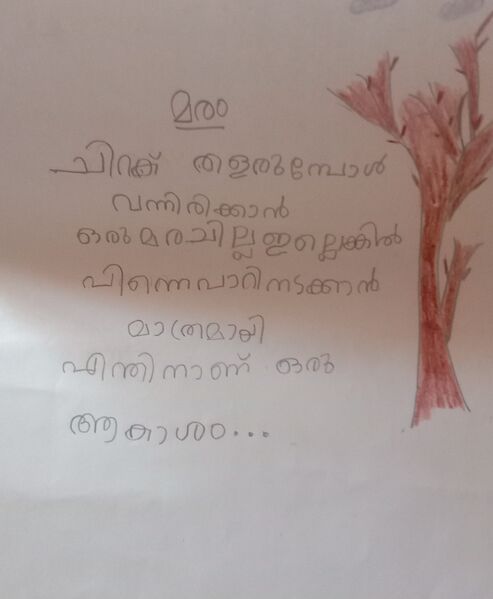 മരം
ചിറക് തളരുമ്പോൾ
വന്നിരിക്കാൻ
ഒരു മരച്ചില്ല ഇല്ലെങ്കിൽ
പിന്നെ പാറിനടക്കാൻ
മാത്രമായി
എന്തിനാണ് ഒരു
ആകാശം...